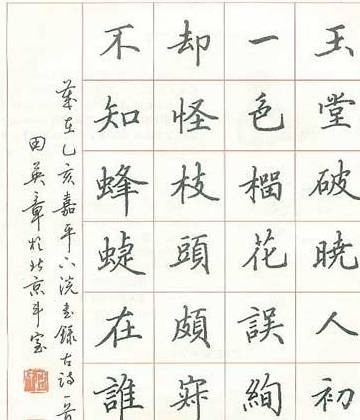 玉堂破曉人初
一色榴花誤絢
却怪枝頭頗寂
不知蜂蜨在誰
歲在乙亥嘉平下浣書録古詩一首
田英章於北京斗室